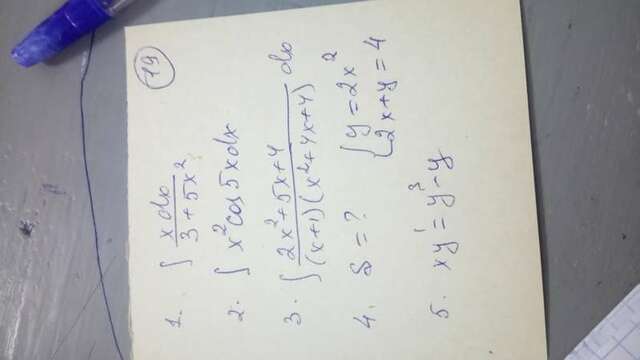 19
1. ∫ x dx / (3 + 5x²)
2. ∫ x² cos 5x dx
3. ∫ (2x² + 5x + 4) / ((x+1)(x² + 4x + 4)) dx
4. S = ? { y = 2x²
2x + y = 4
5. xy' = y³ - y